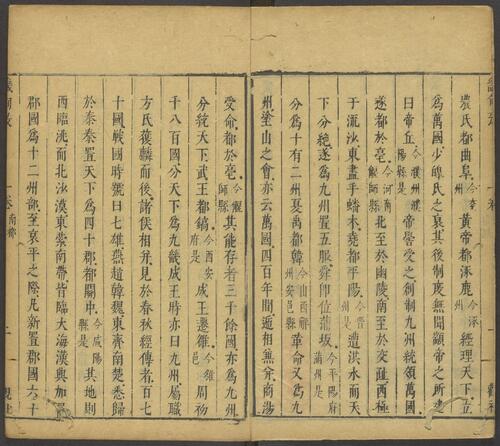 農氏都曲阜今兗州黃帝都涿鹿今涿州經理天下立
為萬國少皥氏之衰其後制度無聞顓帝之所建
曰帝丘今濮州濮陽縣是帝嚳受之創制九州統領萬國
遂都於亳今河南是北至於幽陵南至於交阯西極
于流沙東盡乎蟠木堯都平陽今晉州是遭洪水而天
下分絕遂為九州置五服舜即位蒲坂今平陽府蒲州是
分為十有二州夏禹都韓今山西解州安邑縣革命又為九
州塗山之會亦云萬國四百年間遞相兼并商湯
受命都於亳今偃師縣其能存者三千餘國亦為九州
分統天下武王都鎬今西安府是成王遷雒今雒邑周初
千八百國分天下為九畿成王時亦曰九州屬職
方氏獲麟而後諸侯相并見於春秋經傳者百七
十國戰國時號曰七雄燕趙韓魏東齊南楚悉歸
於秦秦置天下為四十郡都關中今咸陽縣是其地則
西臨洮而北沙漠東縈南帶皆臨大海漢興加置
郡國為十二州部至哀平之際凡新置郡國六十